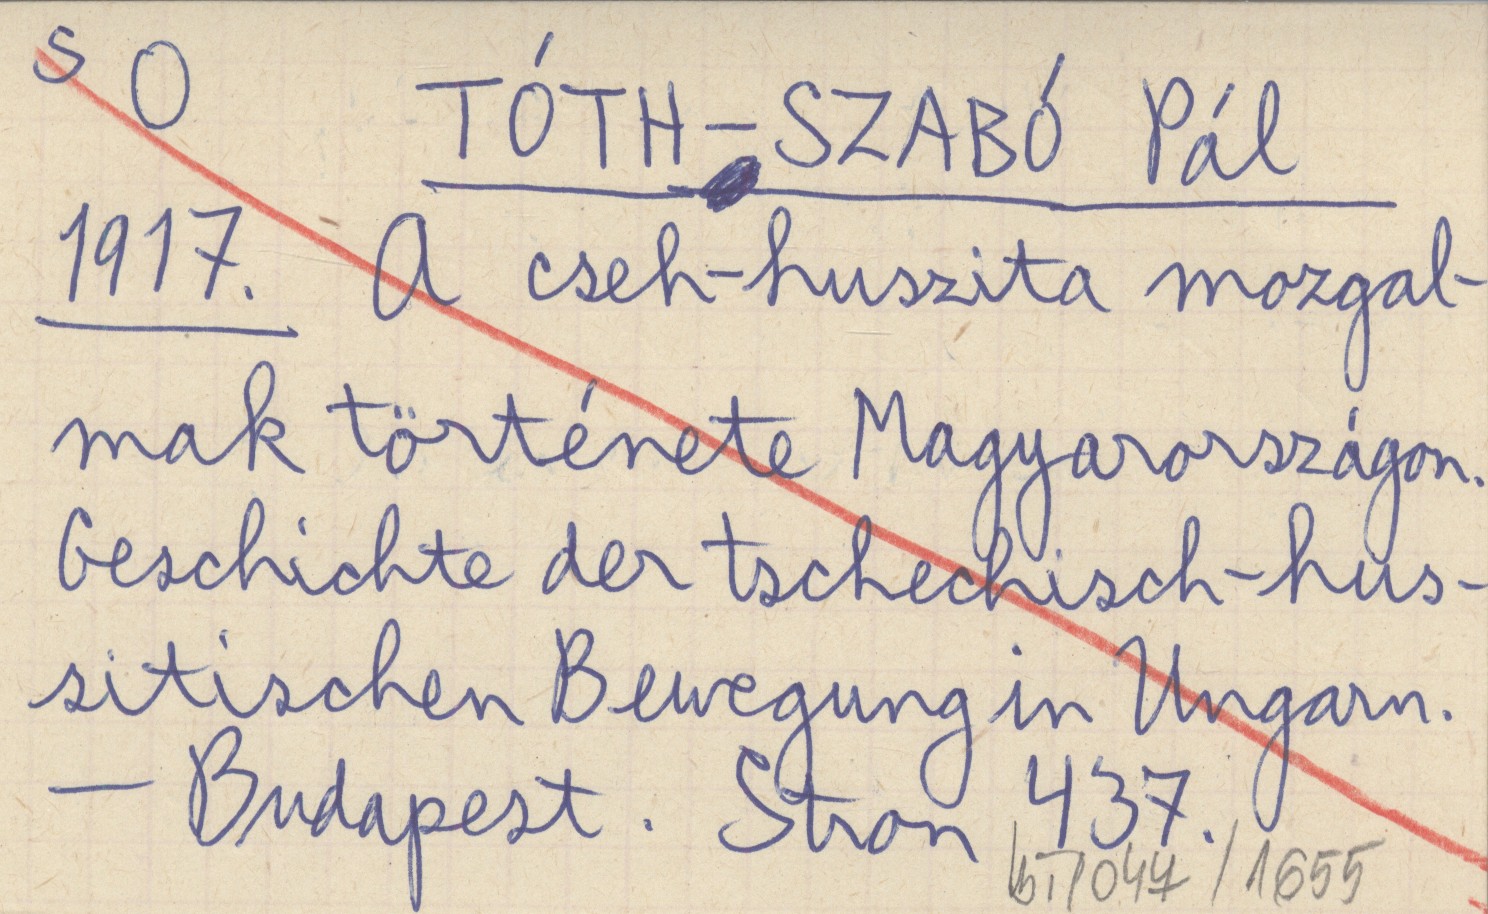 S O TÓTH-SZABÓ Pál
1917. A cseh-huszita mozgal-
mak története Magyarországon.
Geschichte der tschechisch-hus-
sitischen Bewegung in Ungarn.
— Budapest. Stron 437.
/1655